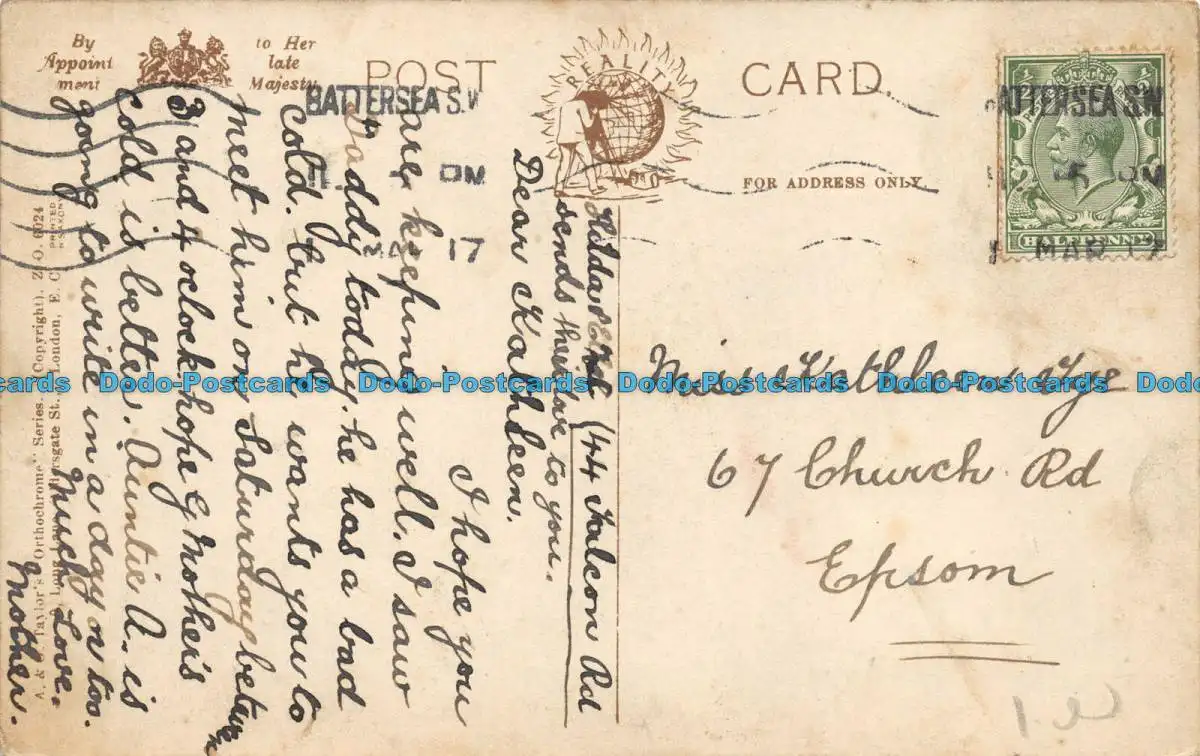 By
Appoint
ment
to Her
late
Majesty
POST
CARD.
REALITY
FOR ADDRESS ONLY.
BATTERSEA S.W
PM
17
BATTERSEA S.W.
5 PM
MAR 17
HALFPENNY
44 Falcon Rd
sends their love to you.
Dear Kathleen,
I hope you
are keeping well. I saw
Daddy today. he has a bad
cold. but he wants you to
meet him on Saturday between
3 and 4 oclock. hope G Mother's
cold is better. Auntie A. is
going to write in a day or too.
Much Love.
Mother.
Miss Kathleen Gye
67 Church Rd
Epsom
A. & G. Taylor's "Orthochrome" Series. (Copyright). Z.O. 6024
Long Lane, Aldersgate St., London, E. C.
PRINTED
IN SAXONY
Dodo-Postcards Dodo-Postcards Dodo-Postcards Dodo-Postcards